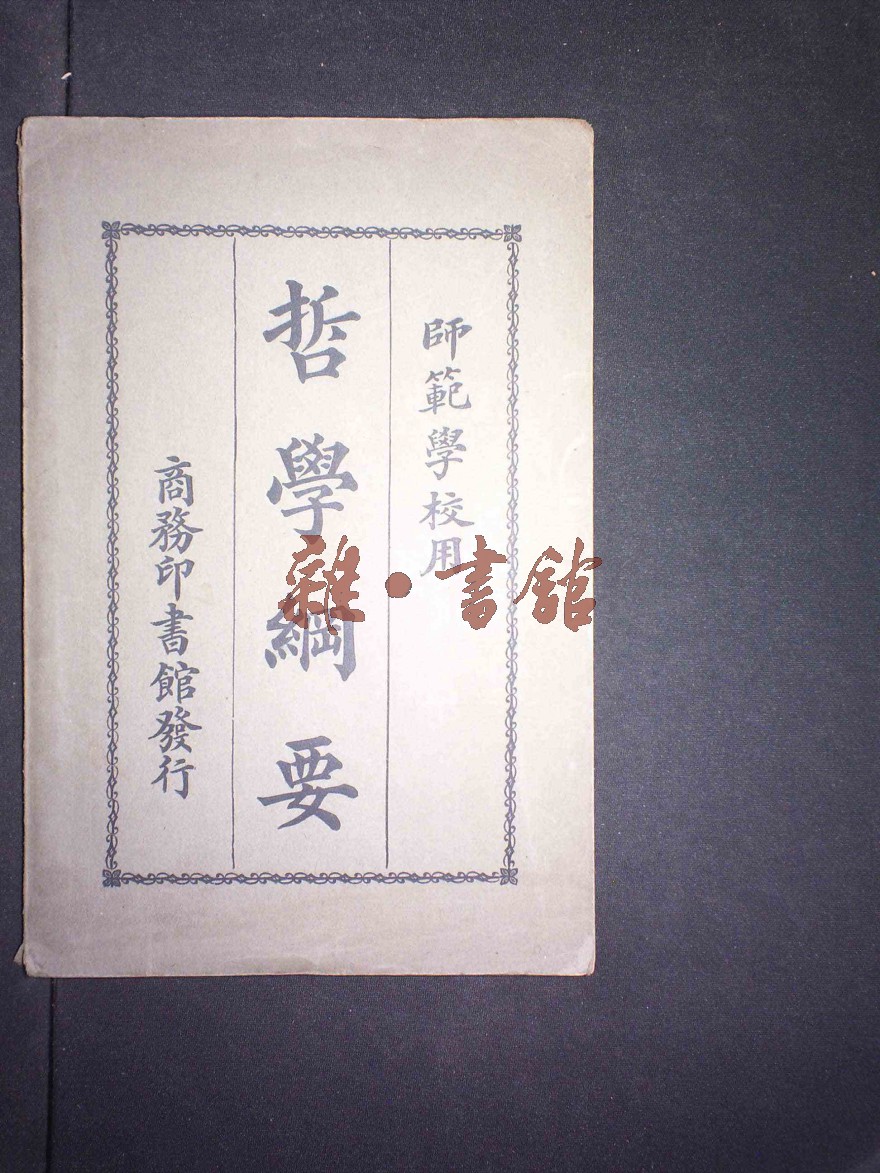 師範學校用
哲學綱要
商務印書館發行
雜·書館